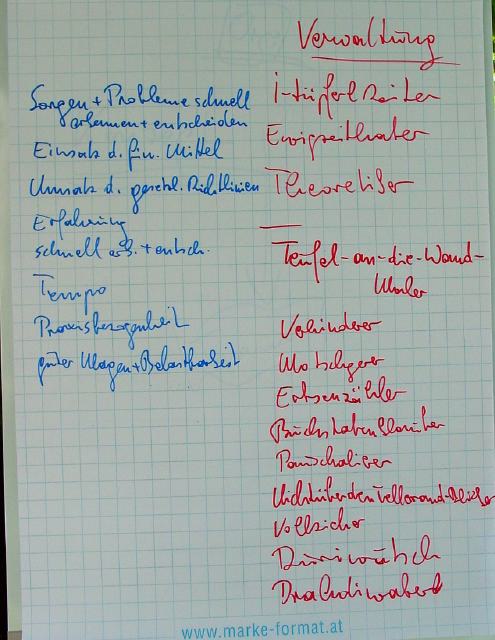 Verwaltung
Sorgen + Probleme schnell
erkennen + entscheiden
Einsatz d. fin. Mittel
Umsatz d. gesetzl. Richtlinien
Erfahrung
schnell erk. + entsch.
Tempo
Praxisbezogenheit
guter Magen + Belastbarkeit
i-tüpferl Reiter
Ewigzeithaber
Theoretiker
Teufel-an-die-Wand-
Maler
Verhinderer
Erbsenzähler
Buchstabenklauber
Pauschalierer
Nichtüberdentellerrand-Blicker
Vollzieher
www.marke-format.at